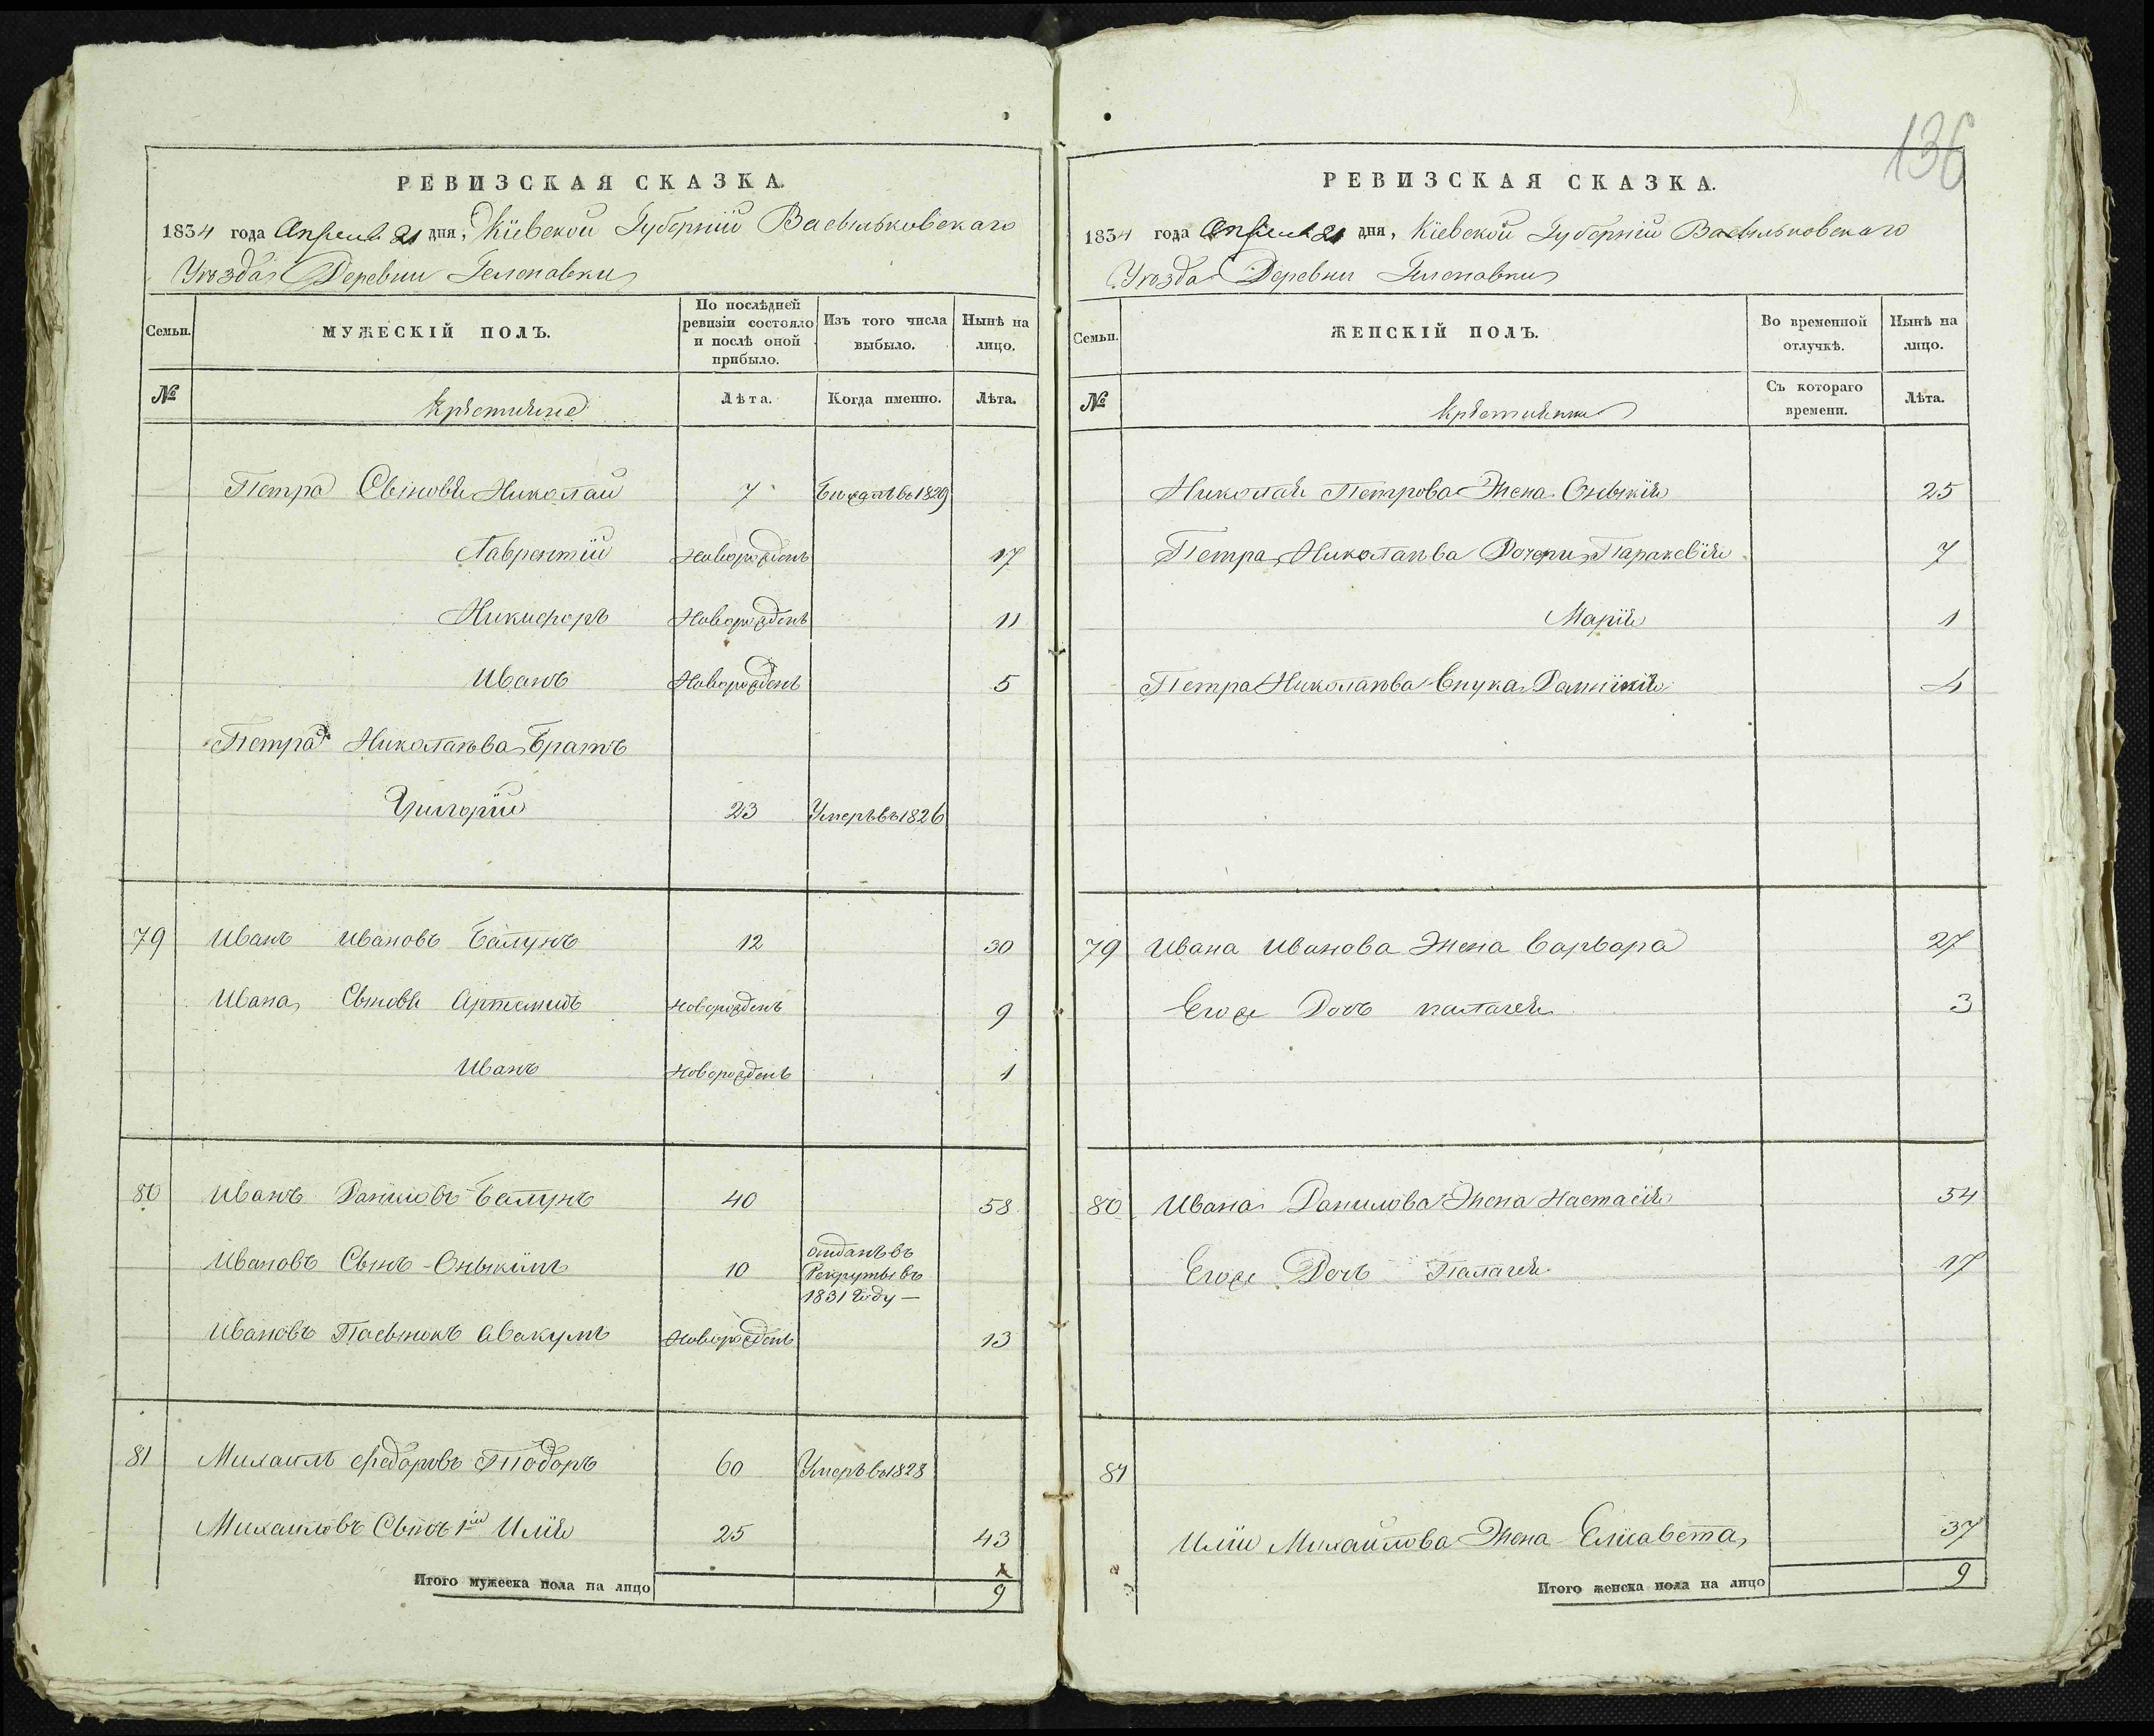 136
РЕВИЗСКАЯ СКАЗКА.
1834 года Апреля 21 дня, Кіевской Губерніи Васильковскаго
Уѣзда Деревни
Семьи.
МУЖЕСКІЙ ПОЛЪ.
По послѣдней ревизіи состояло и послѣ оной прибыло.
Изъ того числа выбыло.
Нынѣ на лицо.
№
Крѣстьяне
Лѣта.
Когда именно.
Лѣта.
Петра Сыновья Николай 7 1829
Лаврентій Новорожденъ 17
Никифоръ Новорожденъ 11
Иванъ Новорожденъ 5
Петра Николаева Братъ
Григорій 23 Умеръ въ 1826
79 Иванъ Ивановъ Балунъ 12 30
Ивана Сыновья Артемидъ Новорожденъ 9
Иванъ Новорожденъ 1
80 Иванъ Даниловъ Балунъ 40 58
Ивановъ Сынъ Оныкимъ 10 отданъ въ Рекруты въ 1831 Году —
Ивановъ Пасынокъ Авакумъ Новорожденъ 13
81 Михаилъ Федоровъ Тодоръ 60 Умеръ въ 1828
Михаиловъ Сынъ 1й Илія 25 43
Итого мужеска пола на лицо 9
РЕВИЗСКАЯ СКАЗКА.
1834 года Апреля 21 дня, Кіевской Губерніи Васильковскаго
Уѣзда Деревни
Семьи.
ЖЕНСКІЙ ПОЛЪ.
Во временной отлучкѣ.
Нынѣ на лицо.
№
Крѣстьянки
Съ котораго времени.
Лѣта.
Николая Петрова Жена 25
Петра Николаева Дочери Параскевія 7
Марія 1
Петра Николаева Внука 4
79 Ивана Иванова Жена Варвара 27
Егоже Дочь палагея 3
80 Ивана Данилова Жена Настасія 54
Егоже Дочь Палагея 17
81
Иліи Михайлова Жена Елисавета 37
Итого женска пола на лицо 9